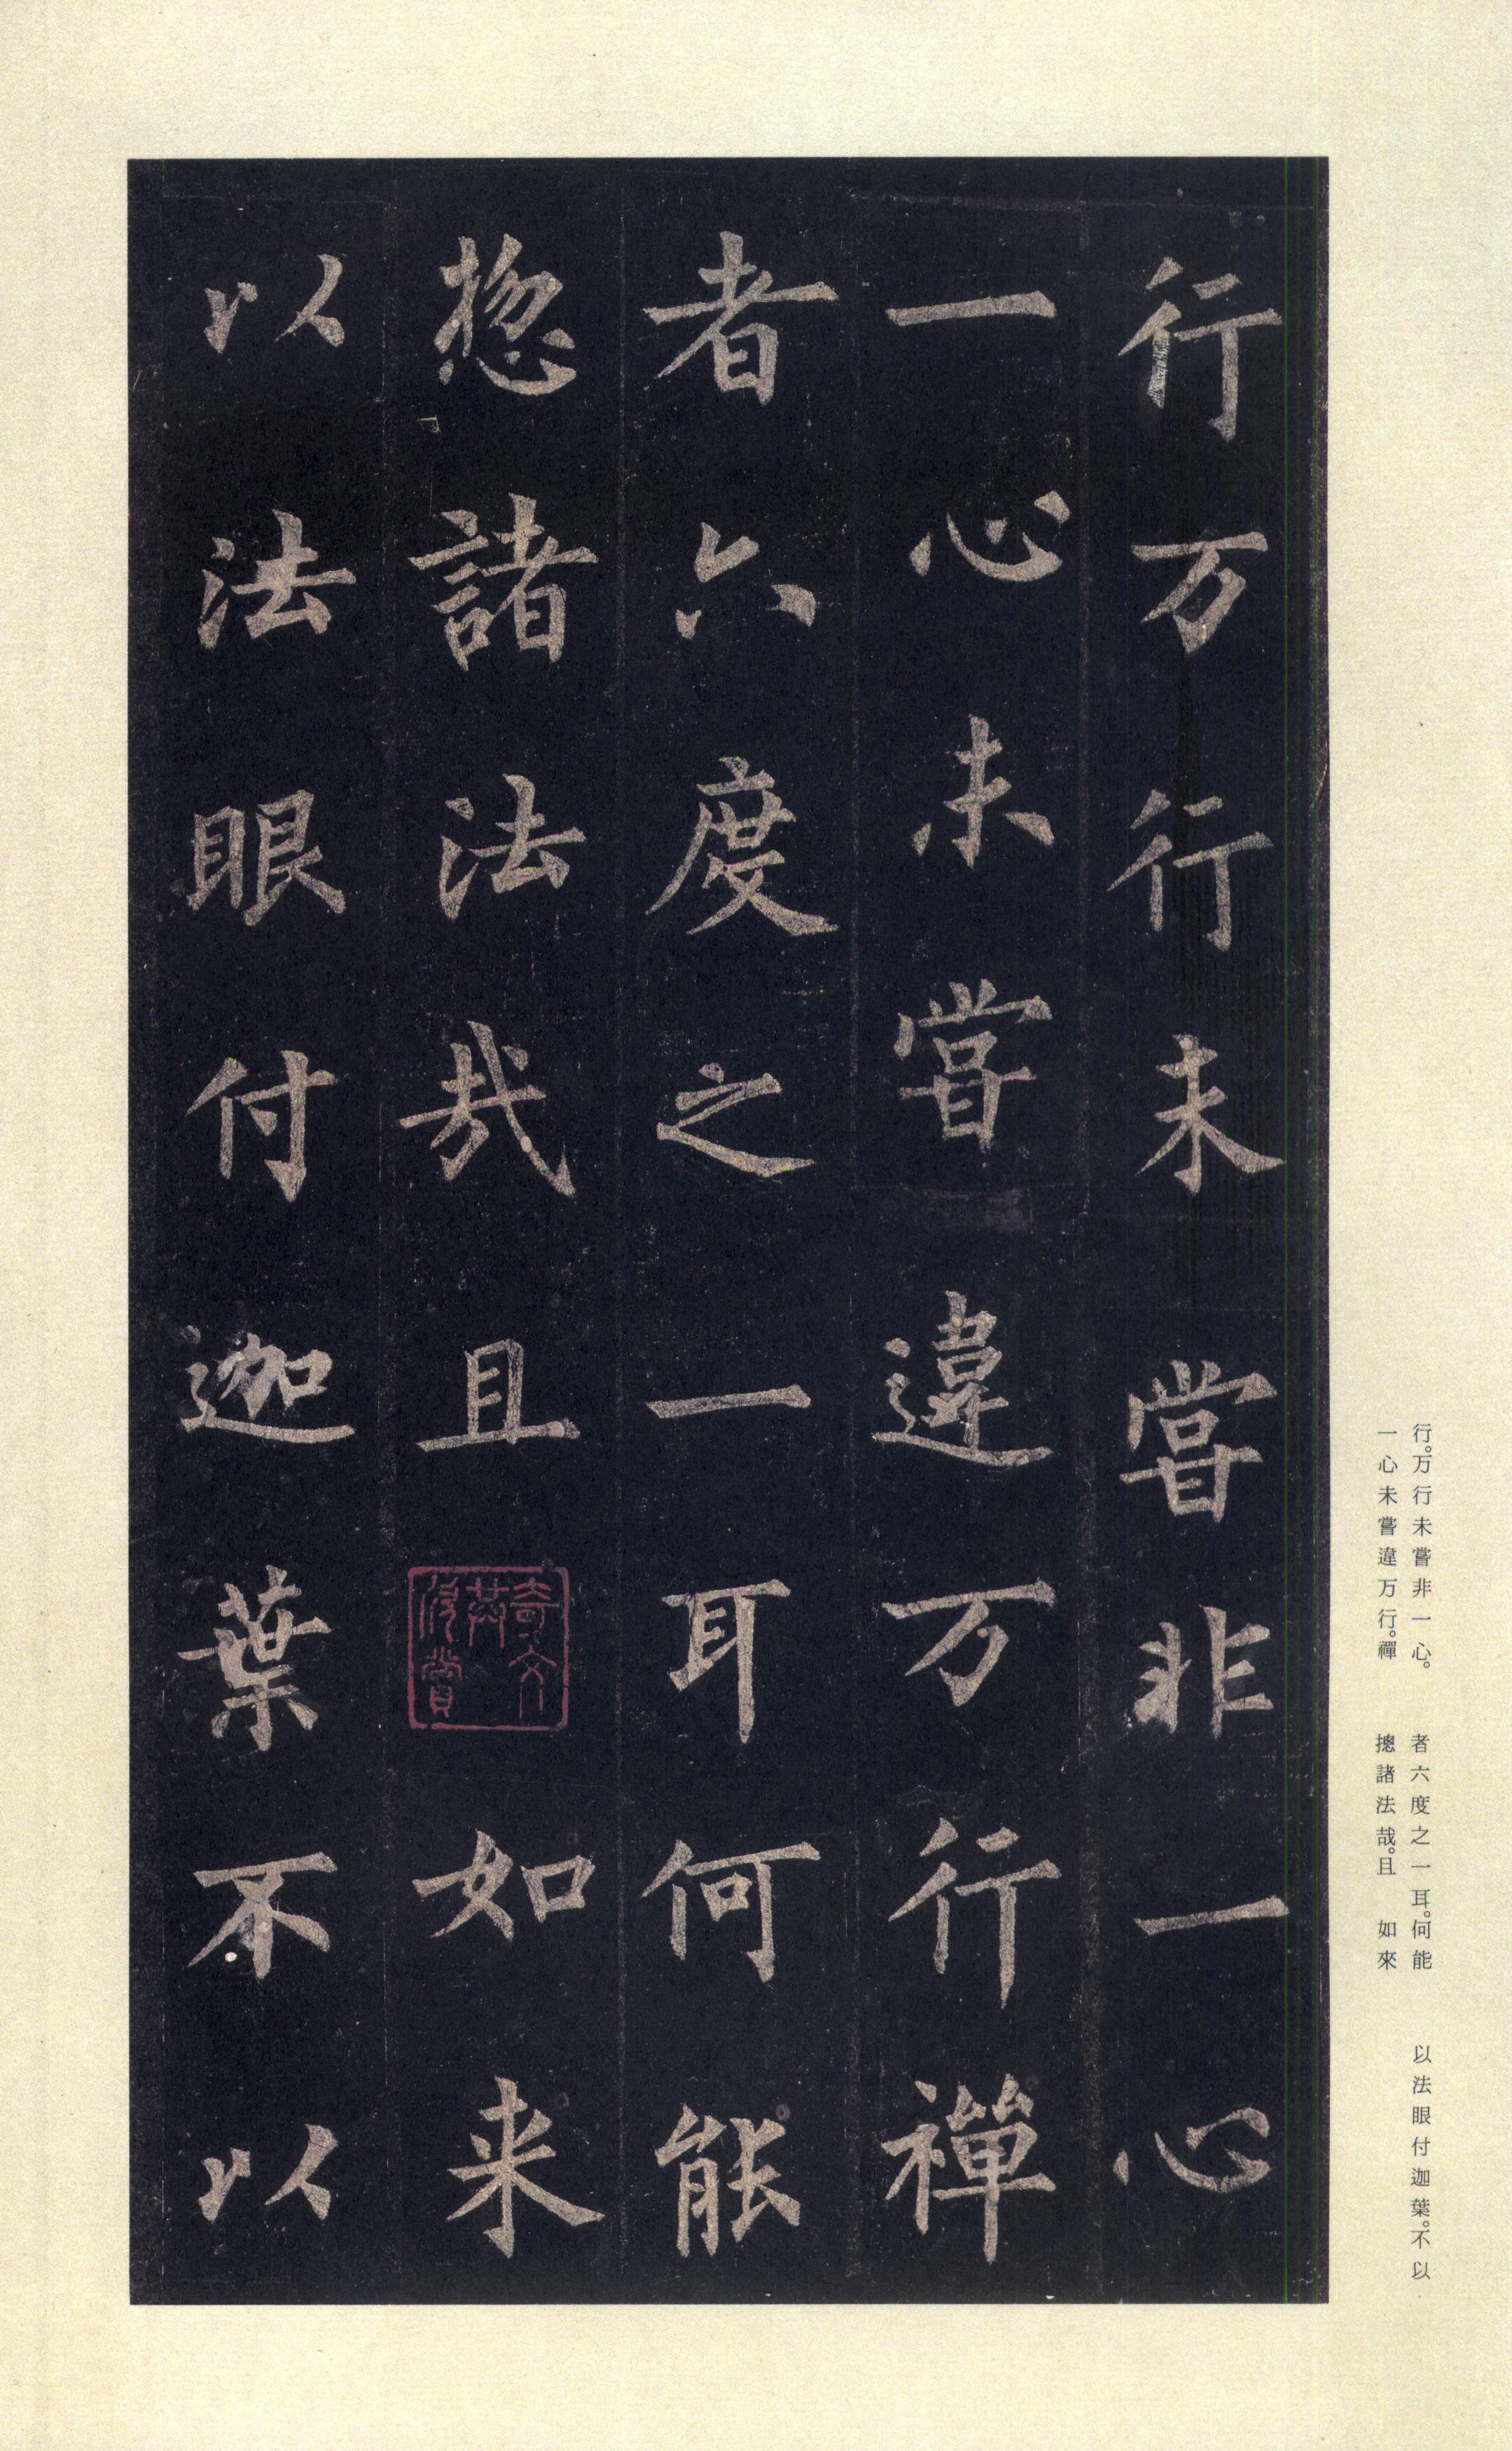 行万行未嘗非一心
一心未嘗違万行禪
者六度之一耳何能
揔諸法哉且如来
以法眼付迦葉不以
奇文共欣賞
行。万行未嘗非一心。
一心未嘗違万行。禪
者六度之一耳。何能
摠諸法哉。且　如來
以法眼付迦葉。不以